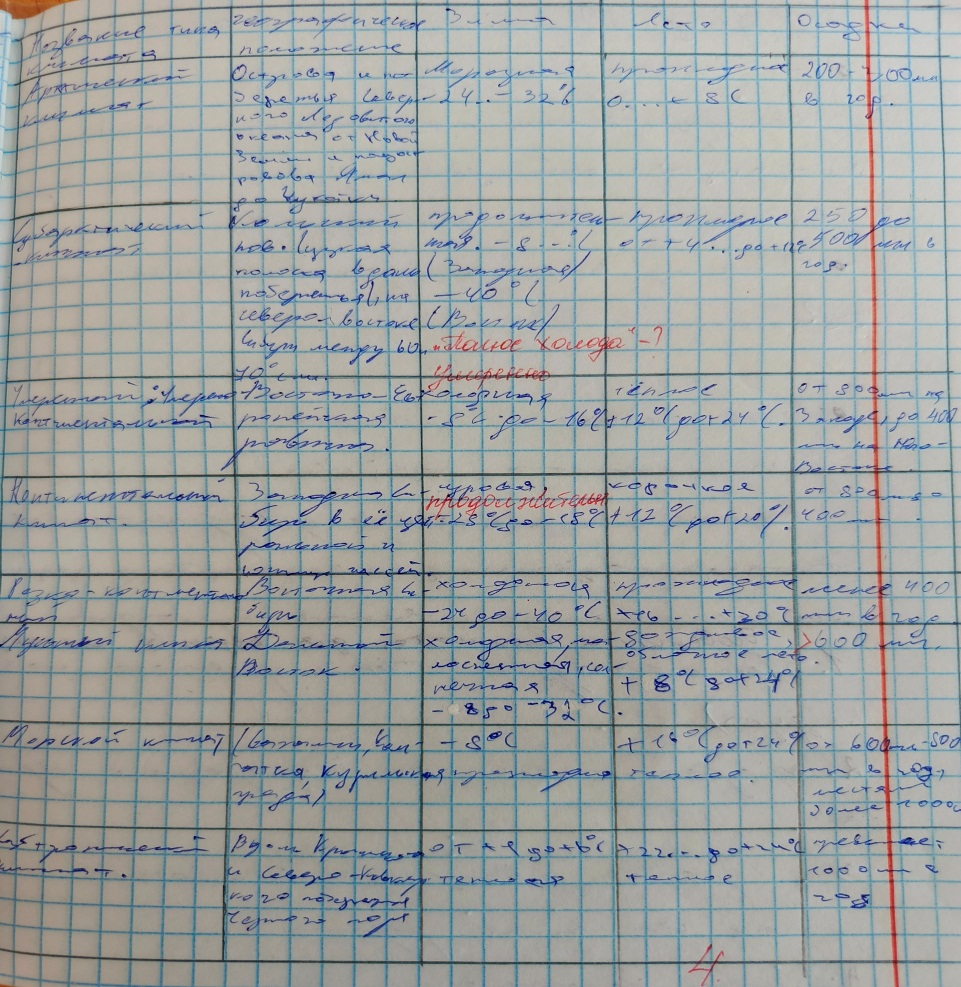 Название типа климата
географическое положение
Зима
Лето
Осадки
Арктический климат
Острова и по-
бережья Север-
ного Ледовитого
океана от Новой
Земли и полуост
рова Ямал
до Чукотки
Морозная
-24..-32°C
прохладное
0...+8C
200-300мм
в год.
Субарктический климат
пов. (узкая
полоса вдоль
побережья), на
северо востоке
между 60.
70° с.ш.
продолжитель-
ная. -8...°C
(Западная)
-40°C
(Восток)
"Полюс холода" -?
прохладное
от +4...до+12°C
250 до
500 мм в
год.
Умеренный: Умерено
континентальный
Восточно-Ев-
ропейская
равнина.
умеренно
холодная
-8°C до -16°C
тёплое
+12°C до+24°C.
от 800мм на
Западе, до 400
мм на Юго-
Востоке.
Континентальный
климат.
Западная Си-
бирь в её цент
ральной и
южных частей.
суровая,
продолжительн
-28°C до -18°C
короткое
+12°C до+20°C.
от 800мм до
400мм.
Резко-континент
ный
Восточная Си-
бирь
холодная
-24 до -40°C
прохладное
+16...+20°C
менее 400
мм в год
Муссонный климат
Дальний
Восток.
холодная, ма-
лоснежная, сол-
нечная
-8до -32°C.
дождливое,
облачное лето.
+8°C до+24°C
>600 мм.
Морской климат
(Сахалин, Кам-
чатка, Курильская
гряда)
-8°C
прохладно
+16°C до+24°C
теплое.
от 600мм-800
мм в год,
местами
более 1000мм
Субтропический
климат.
Вдоль Крымского
и Северо-Кавказ
кого побережья
Черного моря
от +4 до+6°C
теплая
+22...до+24°C
теплое
превышает
1000мм в
год
4